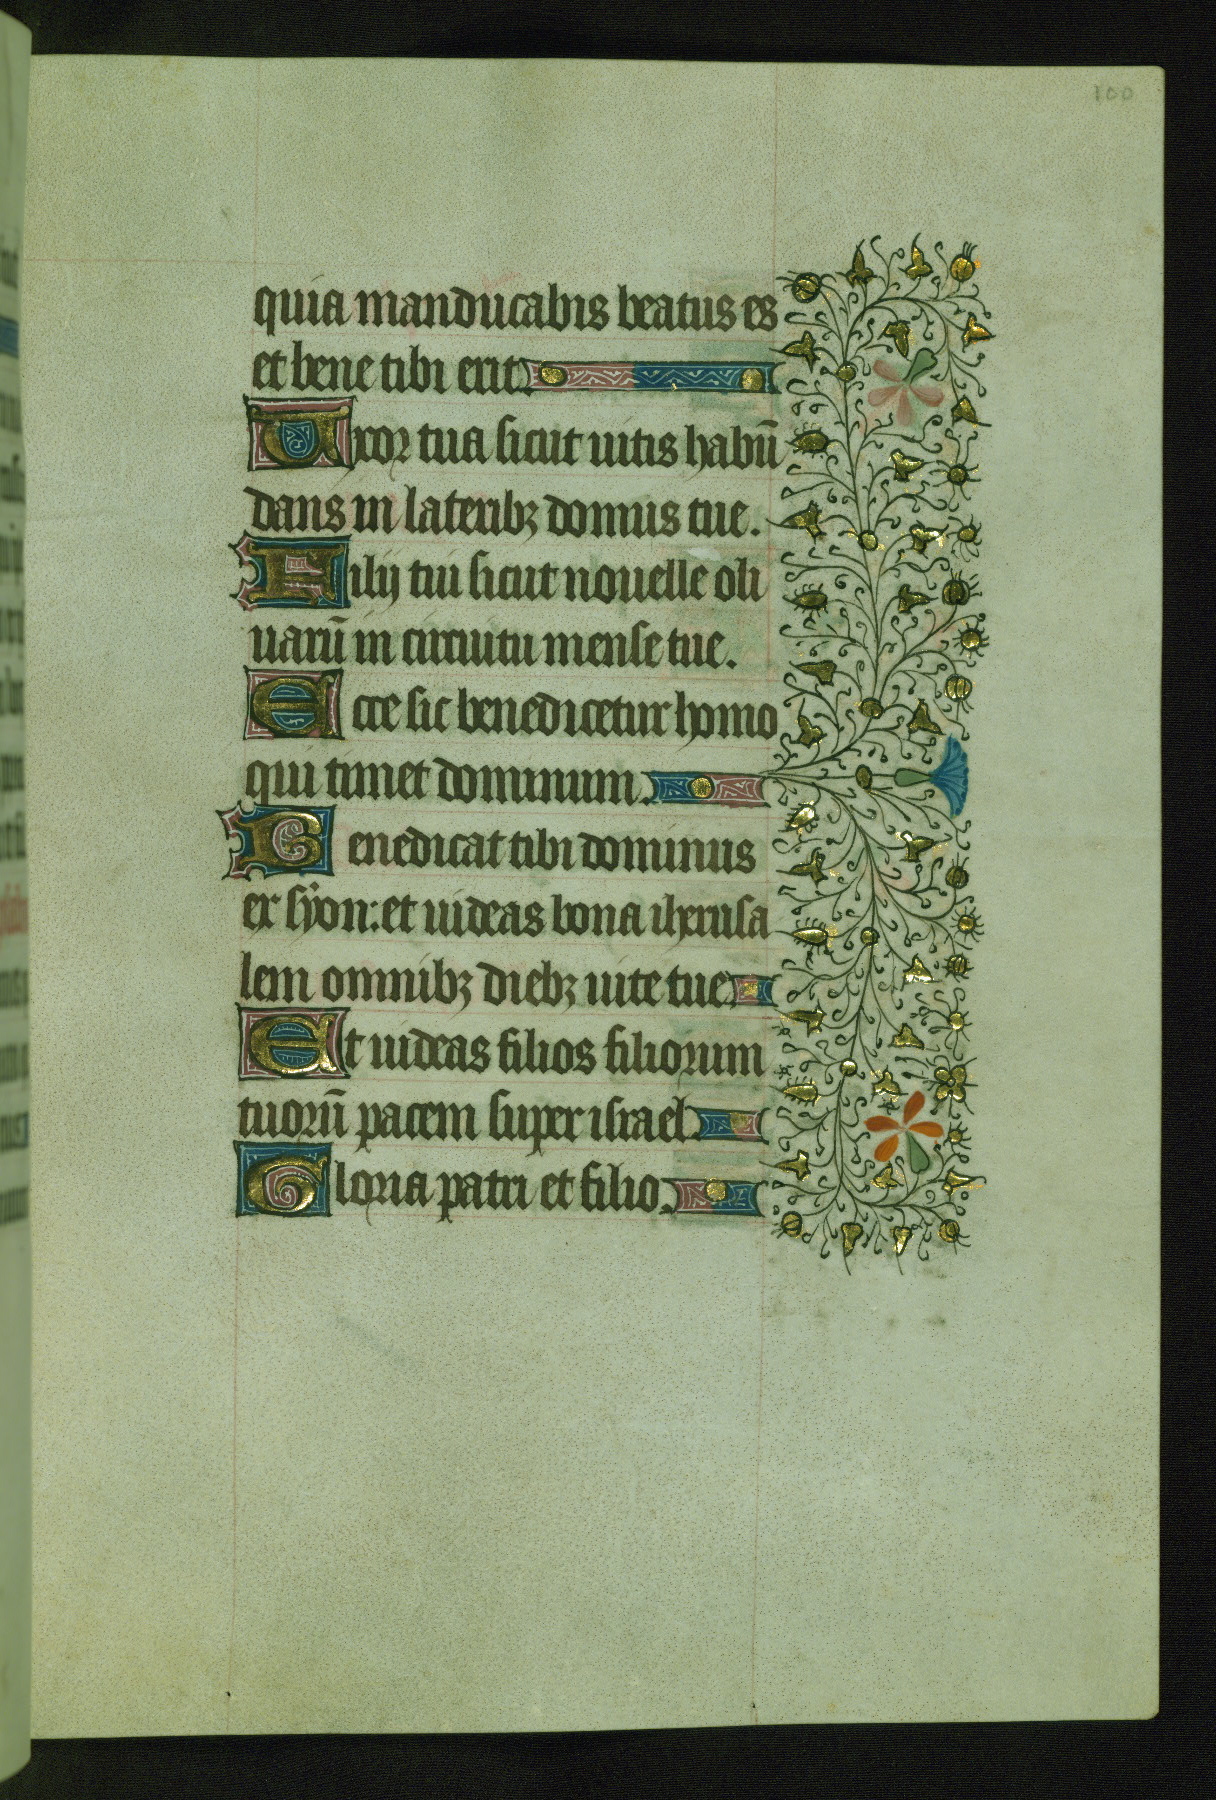 100
quia manducabis beatus es
et bene tibi erit.
Uxor tua sicut uitis habū
dans in lateribꝫ domus tue.
Filij tui sicut nouelle oli
uarū in circuitu mense tue.
Ecce sic benedicetur homo
qui timet dominum.
Benedicat tibi dominus
ex syon: et uideas bona iherusa
lem omnibꝫ diebꝫ uite tue
Et uideas filios filiorum
tuorū pacem super israel
Gloria patri et filio.